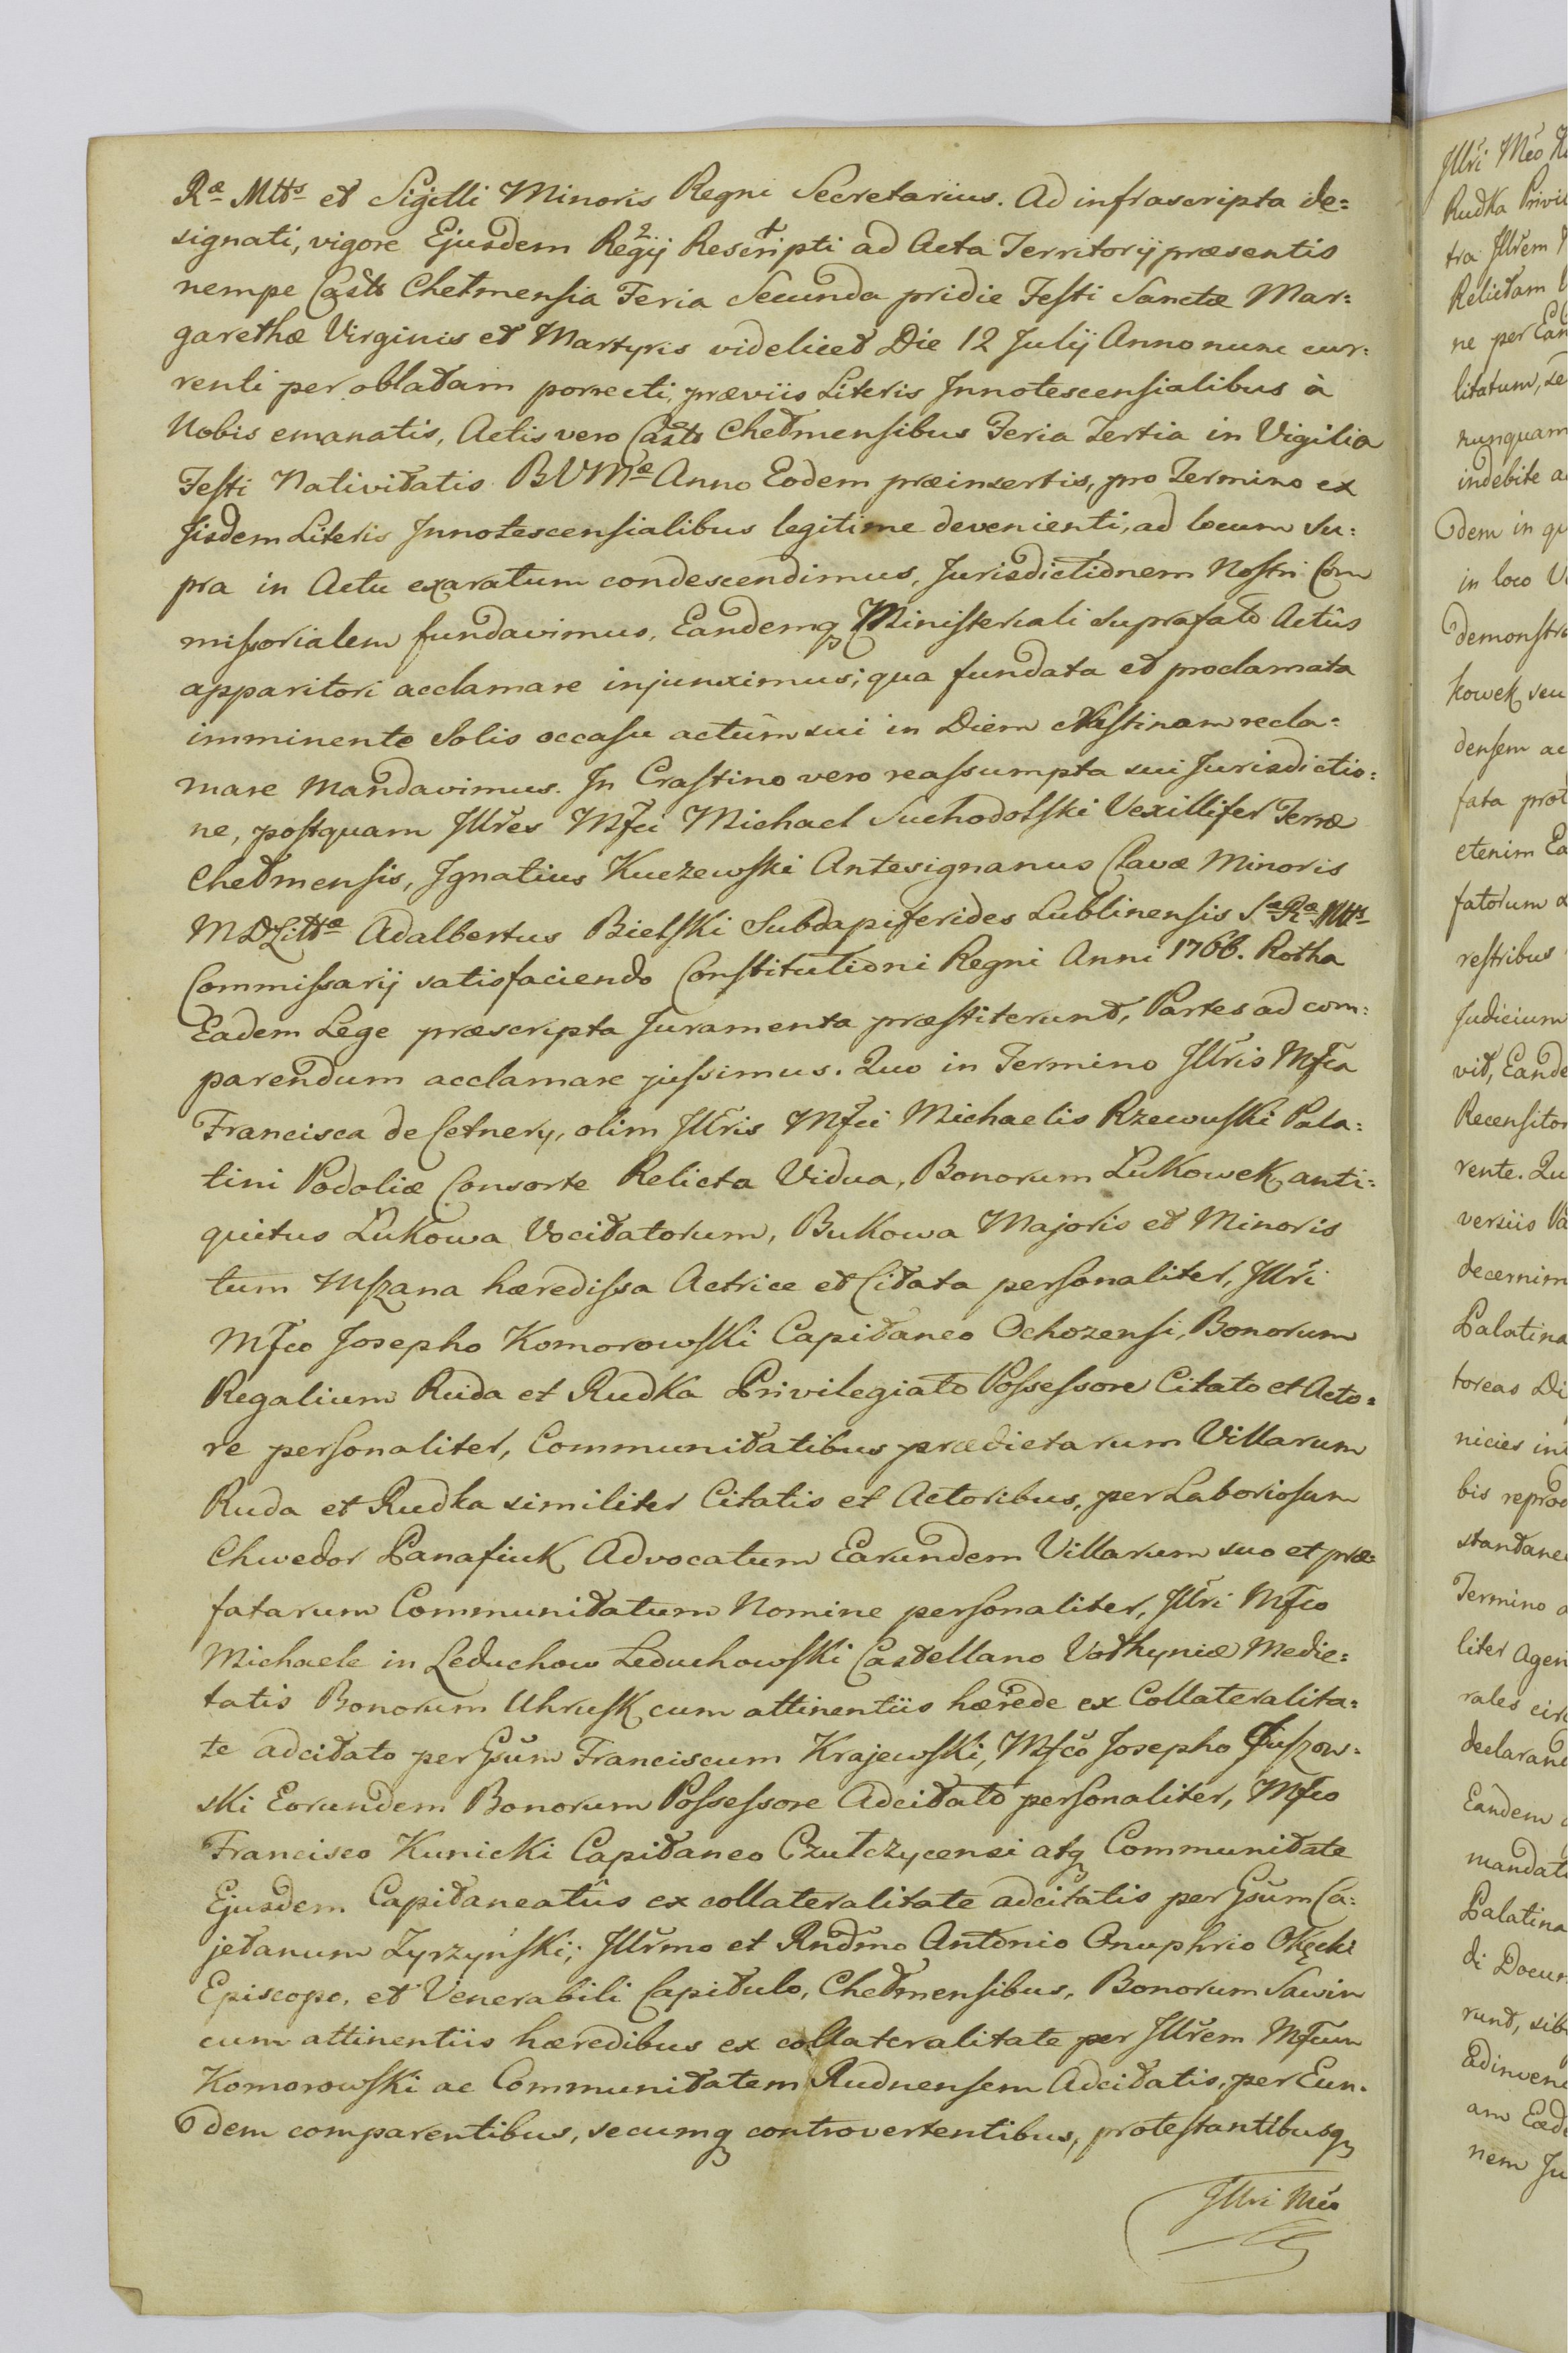 Rᵆ Mttˢ et Sigilli Minoris Regni Secretarius. Ad infrascripta de=
signati, vigore Ejusdem Regij Rescripti ad Acta Territorij præsentis
nempe Castr Chełmensia Feria Secunda pridie Festi Sanctæ Mar=
garethæ Virginis et Martyris videlicet Die 12 Julij Anno nunc cur=
renti per oblatam porrecti, præviis Literis Innotescensialibus à
Nobis emanatis, Actis vero Castr Chełmensibus Feria Tertia in Vigilia
Festi Nativitatis BVMᵆ Anno Eodem præinsertis, pro Termino ex
Iisdem Literis Innotescensialibus legitime devenienti, ad locum su=
pra in Actu exaratum condescendimus, Jurisdictionem Nostri Com
missorialem fundavimus, Eandemq Ministeriali suprafato Actûs
apparitori acclamare injunximus; qua fundata et proclamata
imminente Solis occasu actûm sui in Diem crastinam recla=
mare Mandavimus. In Crastino vero reassumpta sui Jurisdictio=
ne, postquam Illr̃es Mf̃ci Michael Suchodolski Vexillifer Terræ
Chełmensis, Ignatius Kuczewski Antesignanus Clavæ Minoris
MDLittᵆ Adalbertus Bielski Subdapiferides Lublinensis Sᵆ Rᵆ Mttˢ
Commissarij satisfaciendo Constitutioni Regni Anni 1766. Rotha
Eadem Lege præscripta Juramenta præstiterunt, Partes ad com=
parendum acclamare jussimus. Quo in Termino Illr̃is Mf̃ca
Francisca de Cetnery, olim Illr̃is Mf̃ci Michaelis Rzewuski Pala=
tini Podoliæ Consorte Relicta Vidua, Bonorum Łukowek anti=
quitus Łukowa Vocitatorum, Bukowa Majoris et Minoris
tum Mszana hæredissa Actrice et Citata personaliter, Illr̃i
Mf̃co Josepho Komorowski Capitaneo Ochozensi, Bonorum
Regalium Ruda et Rudka Privilegiato Possessore Citato et Acto=
re personaliter, Communitatibus prædictarum Villarum
Ruda et Rudka similiter Citatis et Actoribus, per Laboriosum
Chwedor Panasiuk Advocatum Earundem Villarum suo et præ=
fatarum Communitatum Nomine personaliter, Illr̃i Mf̃co
Michaele in Leduchow Leduchowski Castellano Vołhyniæ Medie=
tatis Bonorum Uhrusk cum attinentiis hærede ex Collateralita=
te adcitato per Gsũm Franciscum Krajewski, Mf̃co Josepho
ski Eorundem Bonorum Possessore Adcitato personaliter, Mf̃co
Francisco Kunicki Capitaneo Czułczycensi atq Communitate
Ejusdem Capitaneatûs ex collateralitate adcitatis per Gsũm Ca=
jetanum Zyrzyński; Illr̃mo et Rndm̃o Antonio Onuphrio Okęcki
Episcopo, et Venerabili Capitulo, Chełmensibus, Bonorum Sawin
cum attinentiis hæredibus ex collateralitate per Illr̃em Mf̃cum
Komorowski ac Communitatem Rudnensem Adcitatis, per Eun=
dem comparentibus, secumq controvertentibus, protestantibusq
Illri Mco
Illr̃i Mc̃o
Rudka
tra Illr̃em
Relictam
ne per
litatum,
nunquam
indebite
dem in
in loco
kowek seu
densem
fata
etenim
fatorum
restribus
Judicium
vit,
rente.
versus
Palatina
toreas
nicies
bis
Termino
liter
rales
Eandem
Palatina
di
runt,
nem